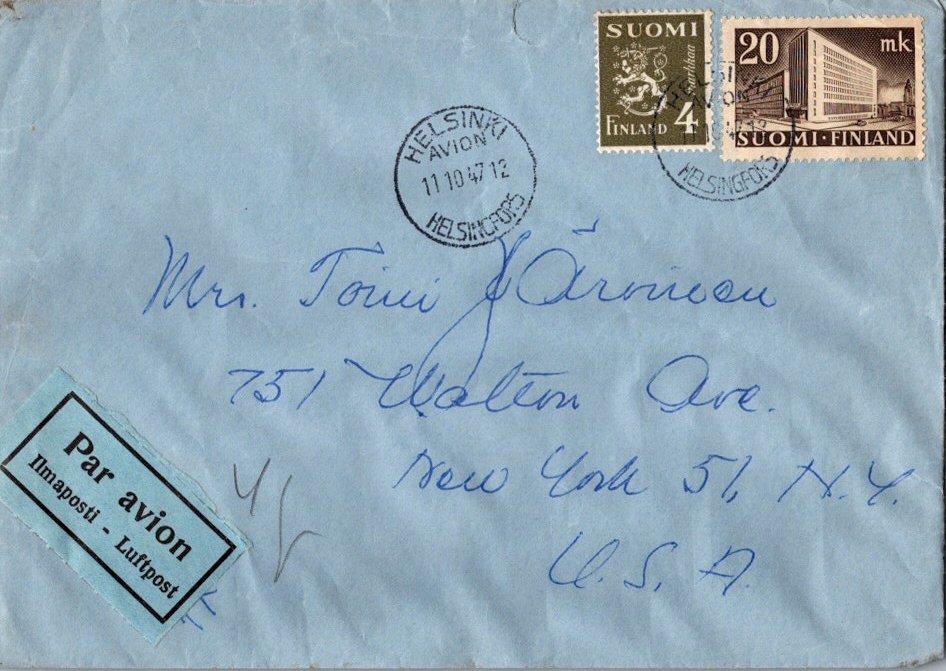 SUOMI
markkaa
FINLAND 4
20 mk
SUOMI·FINLAND
HELSINKI
AVION
11 10 47 12
HELSINGFORS
HELSINKI
AVION
11 10 47 12
HELSINGFORS
Mrs. Toini Järvinen
751 Walton Ave.
New York 51, N.Y.
U.S.A.
Par avion
Ilmaposti - Luftpost